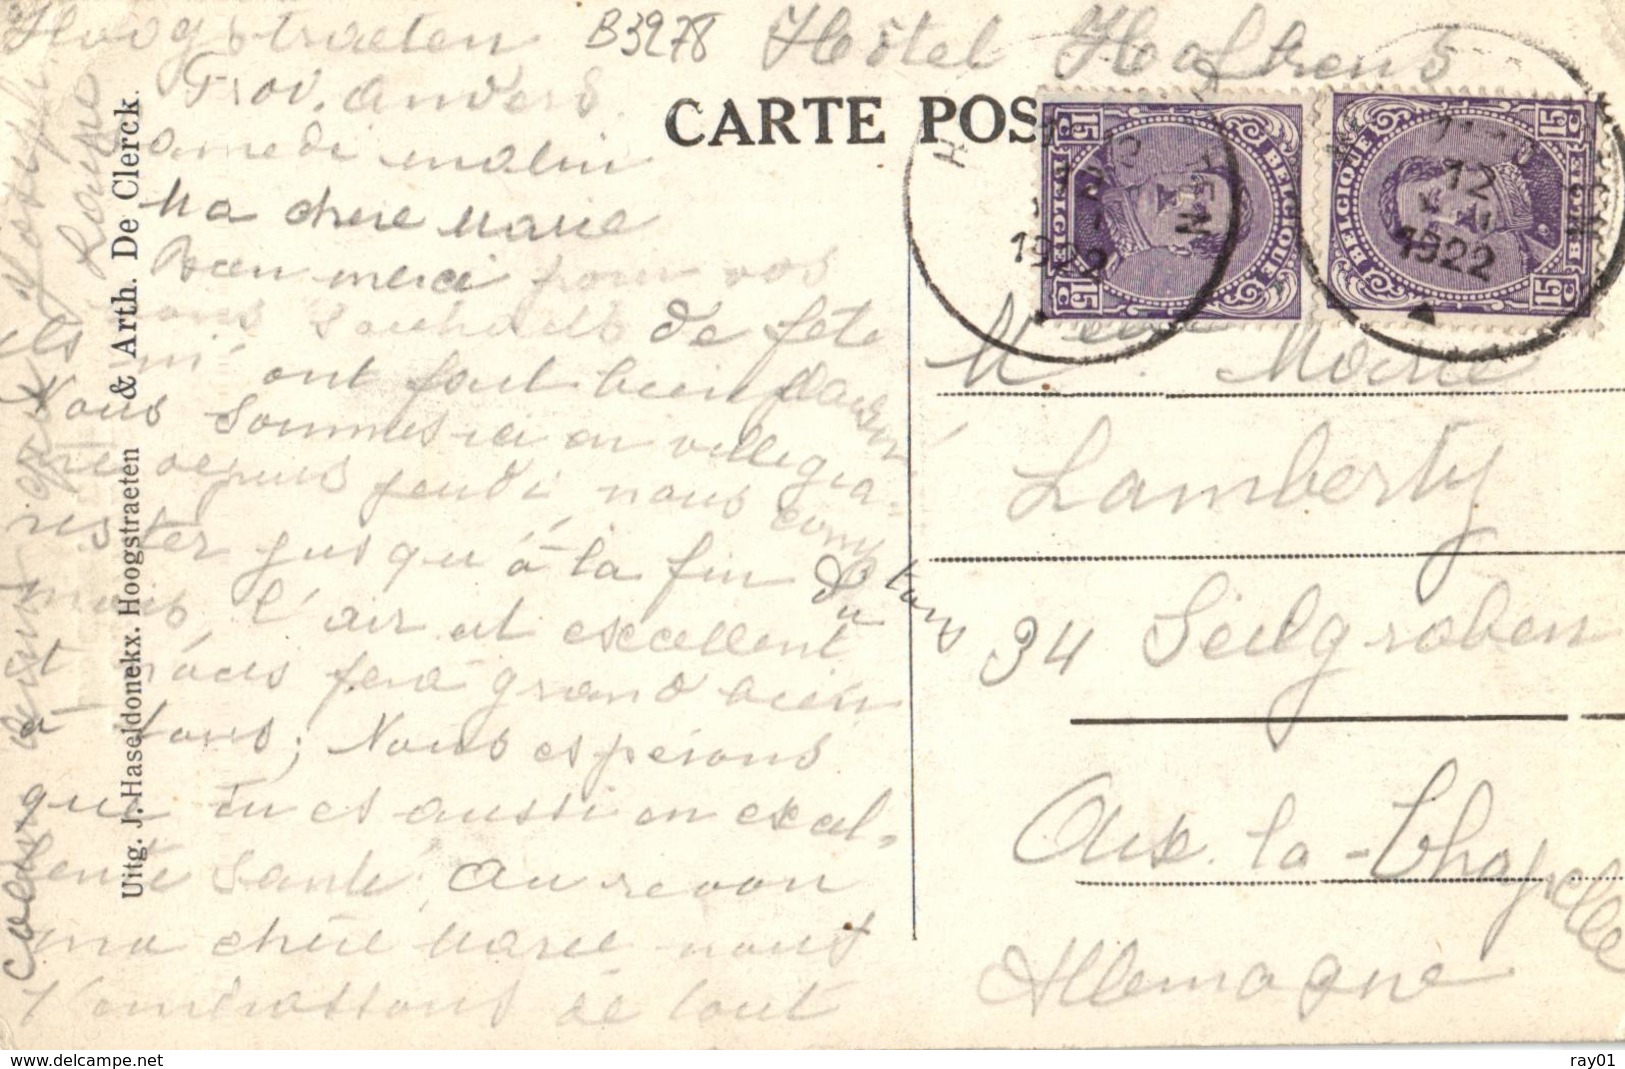 Hoogstraeten B3278 Hôtel Haltrens
Prov. Anvers
CARTE POS
Samedi matin
Ma chère Marie
Bien merci pour vos
bons souhaits de fête
m'ont fait bien plaisir
Nous sommes ici en villegia-
ture depuis jeudi nous comptons
rester jusqu'à la fin du
mois, l'air est excellent
et nous fera grand bien
à tous; Nous espérons
que tu es aussi en excel-
lente santé. Au revoir
ma chère Marie nous
t'embrassons de tout
coeur
Uitg. J. Haseldonckx. Hoogstraeten & Arth. De Clerck.
BELGIQUE BELGIË
15 C 15 C
12
1922
BELGIQUE BELGIË
15 C 15 C
12
XI
1922
Melle Marie
Lamberty
34 Seilgraben
Aix-la-Chapelle
Allemagne
ray01
www.delcampe.net